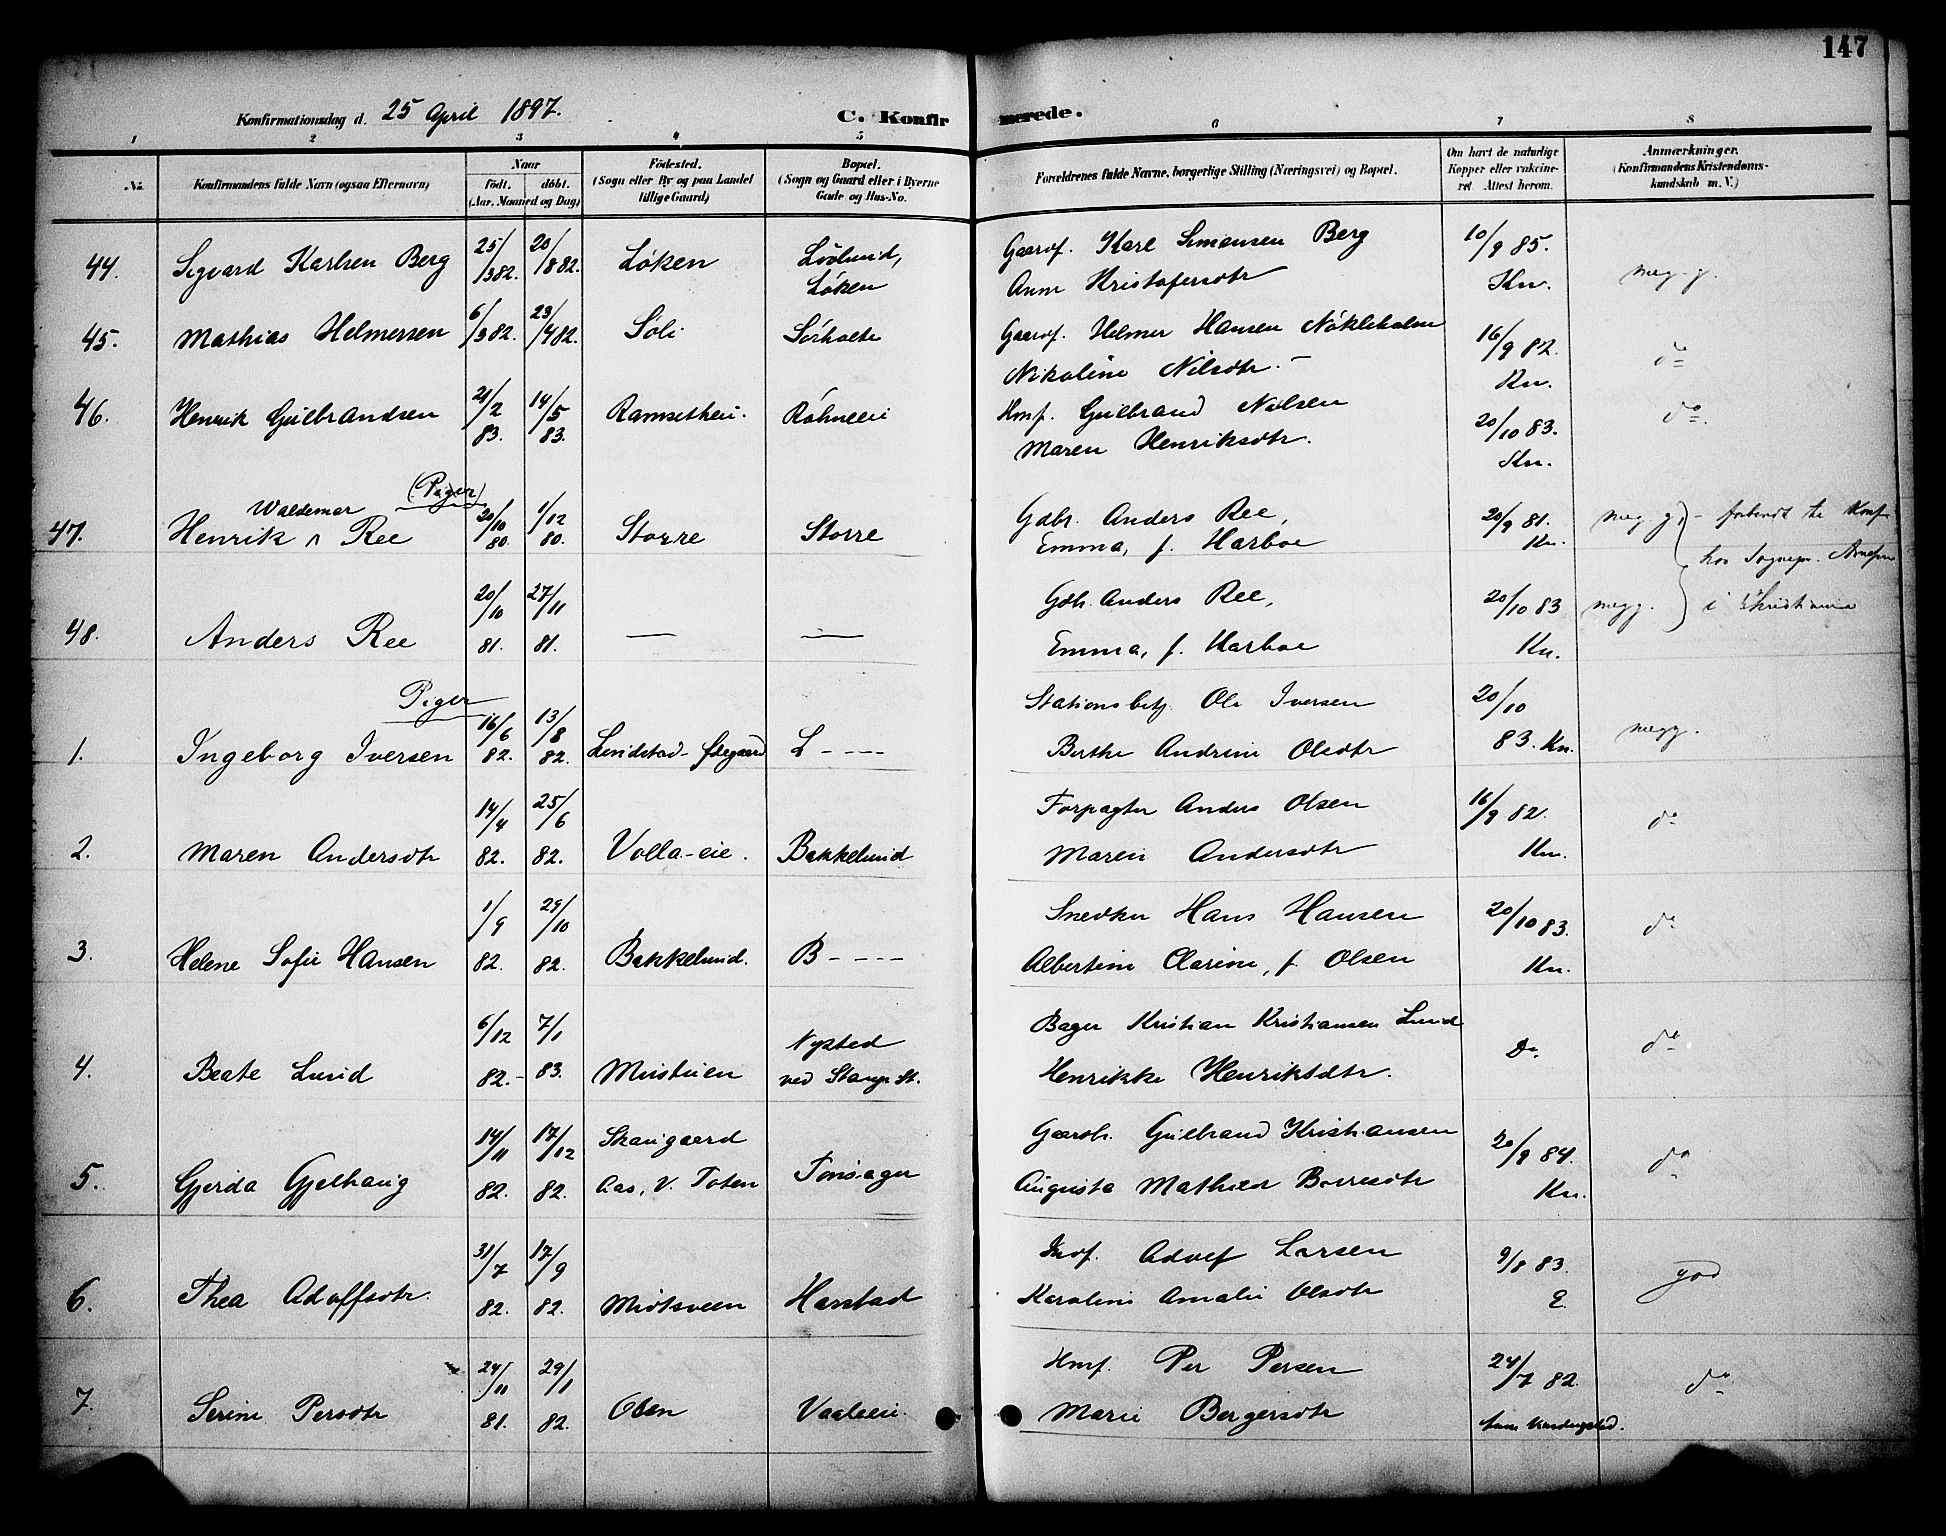 147
Konfirmationsdag d. 25 April 1897.
C. Konfirmerede.
1 2 3 4 5 6 7 8
No.
Konfirmandens fulde Navn (ogsaa Efternavn)
Naar
födt. döbt.
(Aar, Maaned og Dag)
Födested.
(Sogn eller By og paa Landet
tillige Gaard)
Bopæl.
(Sogn og Gaard eller i Byerne
Gade og Hus-No.
Forældrenes fulde Navne, borgerlige Stilling (Næringsvei) og Bopæl.
Om havt de naturlige
Kopper eller vakcine-
ret Attest herom.
Anmærkninger.
(Konfirmandens Kristendoms-
kundskab m. V.)
44. Sigvard Karlsen Berg 25/3 82. 20/8 82. Løken Løken Gaarvf. Karl Simensen Berg 10/9 85. Kn. meg. g.
Kristofersdtr
45. Mathias Helmersen 6/3 82. 23/4 82. Søli Sørholte Gaarvf. Helmer Hansen 16/9 82. Kn. do
Nikoline Nilsdtr. -
46. Henrik Gulbrandsen 21/2 83. 14/5 83. Hmf. Gulbrand Nilsen 20/10 83. Kn. do.
Maren Henriksdtr.
(Piger)
47. Henrik Waldemar Ree 20/10 80. 1/12 80. Storre Storre Gdbr. Anders Ree, 20/9 81. Kn. meg. g. -
Emma, f. Harboe
48. Anders Ree 20/10 81. 27/11 81. — — Gdb. Anders Ree, 20/10 83 Kn. megg. i Christiania
Emma, f. Harboe
Piger
1. Ingeborg Iversen 16/6 82. 13/8 82. Lundstad-Ødegaard L - - - - Stationsbetj. Ole Iversen 20/10 83. Kn. megg.
Berthe Andrine Olsdtr
2. Maren Andersdtr 14/4 82. 25/6 82. Volla-eie. Bakkelund Forpagter Anders Olsen 16/9 82. Kn. do
Maren Andersdtr
3. Helene Sofie Hansen 1/9 82. 29/10 82. Bakkelund. B - - - - Snedker Hans Hansen 20/10 83. Kn. do
Albertine Clarine, f. Olsen
4. Beate Lund 6/12 82.- 7/1 83. Mustuen Nysted Bager Kristian Kristiansen Lund Do. do
ved Stange St. Henrikke Henriksdtr.
5. Gjerda Gjelhaug 14/11 82. 17/12 82. Skaugaard Tonsager Gaardb. Gulbrand Kristiansen 20/9 84. Kn. do
Aas, V. Toten Augusta Mathea Borresdtr
6. Thea Adolfsdtr. 31/7 82. 17/9 82. Midtsveen Harstad Indf. Adolf Larsen 9/8 83. E. god
Karoline Amalie Olsdtr
7. Serine Persdtr 24/11 81. 29/1 82. Olsen Vaaleeie. Hmf. Per Persen 24/7 82. do
Marie Bergersdtr